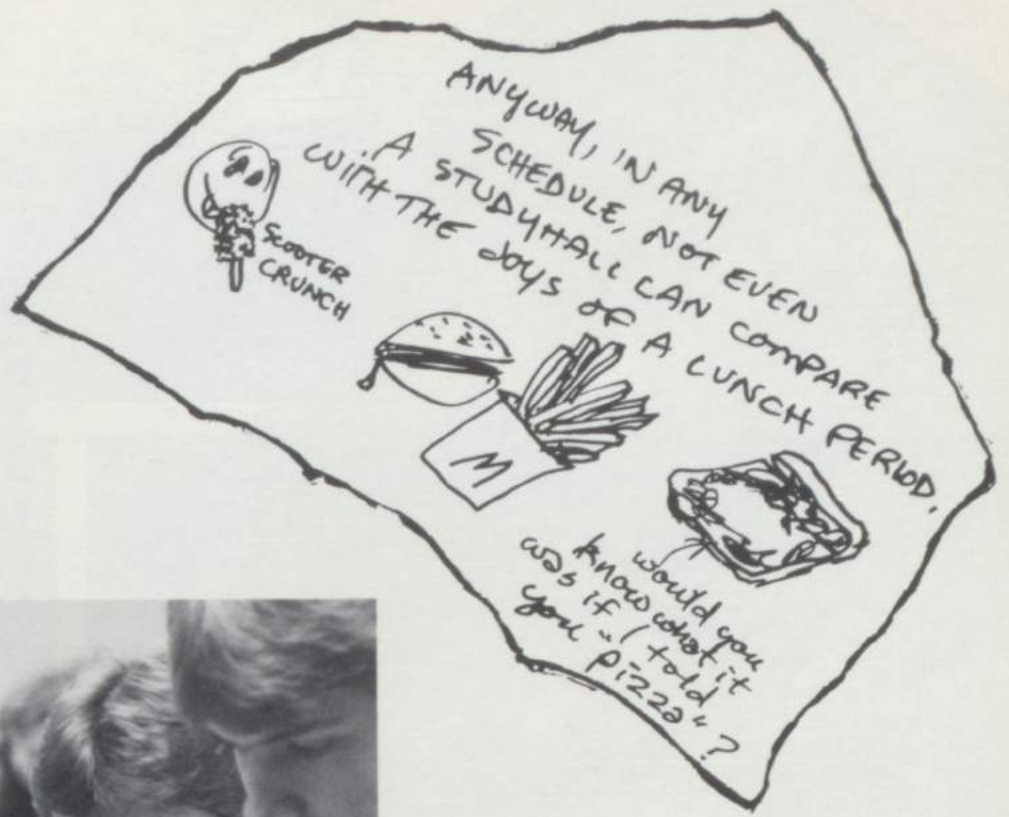 ANYWAY, IN ANY
SCHEDULE, NOT EVEN
A STUDYHALL CAN COMPARE
WITH THE JOYS OF A LUNCH PERIOD.
SCOOTER
CRUNCH
M
would you
know what it
was if I told
you "pizza"?